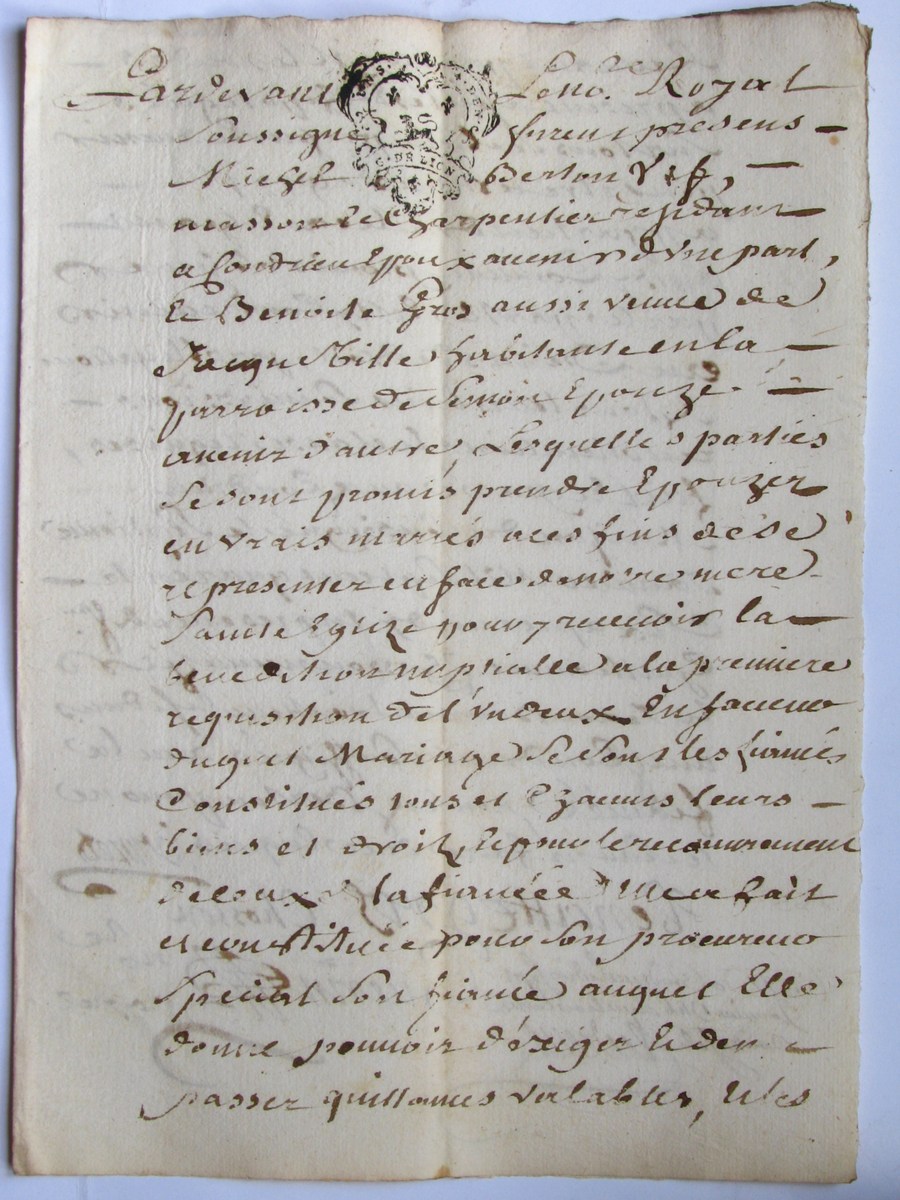 Pardevant Le no.re Royal
soussigné furent presens
Michel Berton vef,
masson et Charpentier residant
a Condrieu Epoux avenir d'vne part,
Et Benoite Gros aussi veuue de
Jacque Mille habitante en la
parroisse de Semon Epouze
avenir d'autre, Lesquelles parties
se sont promis prendre Epouzer
en vrais mariés a ces fins de se
representer en face de notre mere
Sainte Eglize pour y receuoir la
benediction nuptialle a la premiere
requisition de l'vn deux En faueur
duquel Mariage se sont les fiancés
Constitués tous et Chacuns leurs
biens et droits, Et pour le recouurement
diceux la fiancée a fait
et constitué pour son procureur
special son fiancé auquel Elle
donne pouuoir d'exiger Et den
passer quittances valables, Et les
G. DE LION